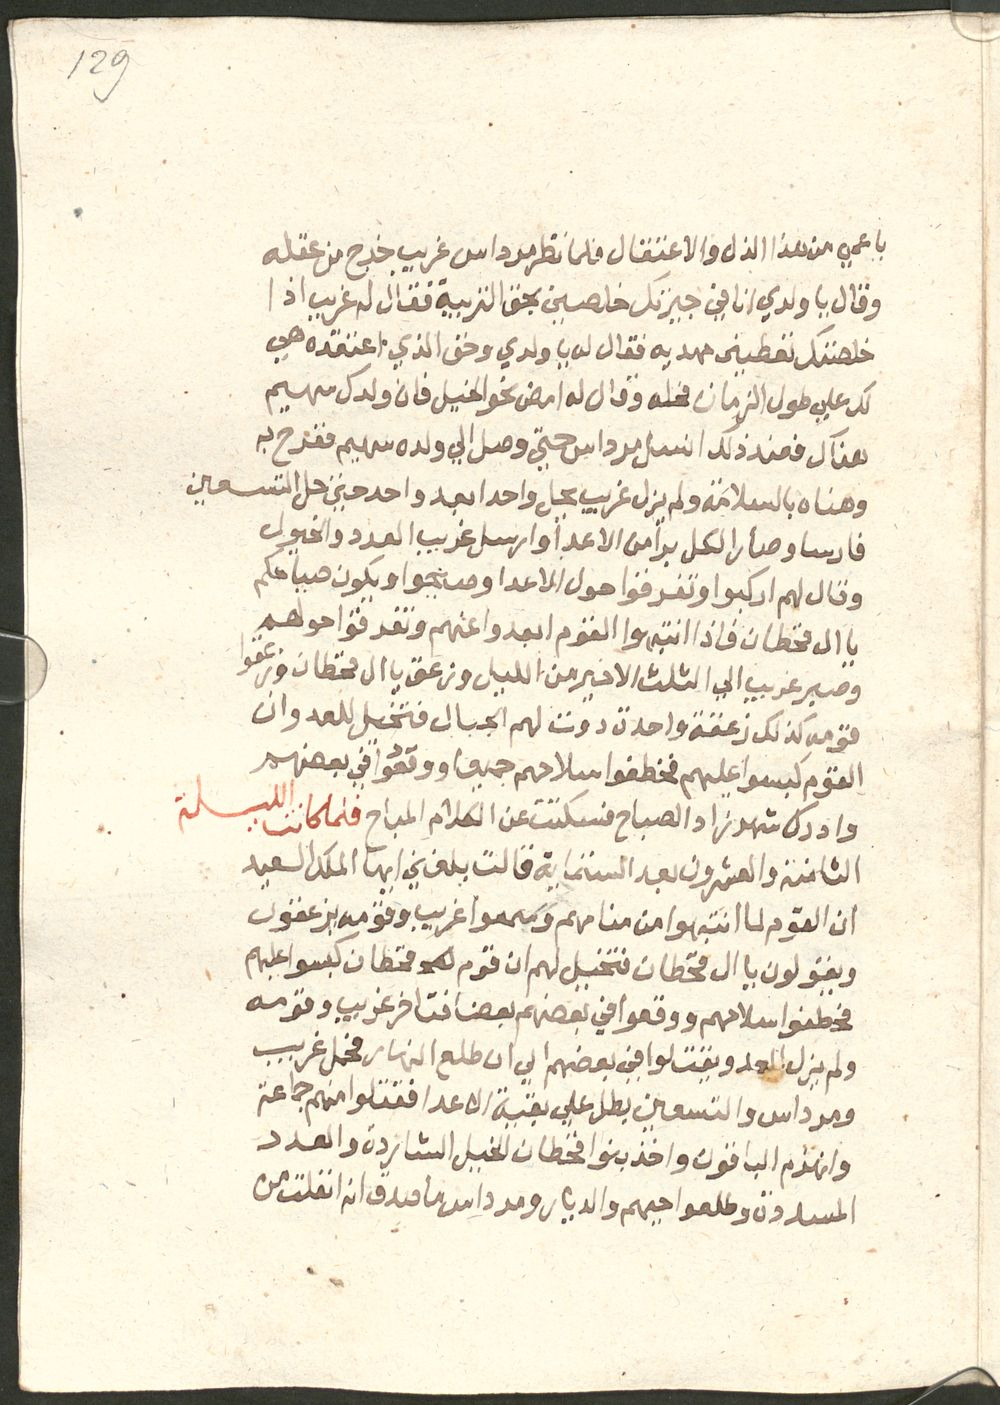 129
يا عمي من هذا الذل والاعتقال فلما نظر مرداس غريب خرج من عقله
وقال يا ولدي انا في جيرتك خلصني بحق التربية فقال له غريب اذا
خلصتك تعطيني مهديه فقال له يا ولدي وحق الذي اعتقده هي
لك علي طول الزمان فحله وقال له امض نحو الخيل فان ولدك سهيم
هناك فعند ذلك انسل مرداس حتي وصل الي ولده سهيم ففرح به
وهناه بالسلامة ولم يزل غريب يحل واحدا بعد واحد حتي حل التسعين
فارسا وصار الكل برا من الاعدا وارسل غريب العدد والخيول
وقال لهم اركبوا وتفرقوا حول الاعدا وصيحوا ويكون صياحكم
يا ال قحطان فاذا انتبهوا القوم ابعدوا عنهم وتفرقوا حولهم
وصبر غريب الي الثلث الاخير من الليل وزعق يا ال قحطان وزعقوا
قومه كذلك زعقة واحدة دوت لهم الجبال فتخيل للعدو ان
القوم كبسوا عليهم فخطفوا سلاحهم جميعا ووقعوا في بعضهم
وادرك شهرزاد الصباح فسكتت عن الكلام المباح فلما كانت الليلة
الثامنة والعشرون بعد الستماية قالت بلغني ايها الملك السعيد
ان القوم لما انتبهوا من منامهم وسمعوا غريب وقومه يزعقون
ويقولون يا ال قحطان فتخيل لهم ان قوم قحطان كبسوا عليهم
فخطفوا سلاحهم ووقعوا في بعضهم بعضا فتاخر غريب وقومه
ولم يزل العدو يقتتلوا في بعضهم الي ان طلع النهار فحمل غريب
ومرداس والتسعين بطل علي بقية الاعدا فقتلوا منهم جماعة
وانهزم الباقون واخذ بنوا قحطان الخيل الشاردة والعدد
المسردة وطلعوا حيهم والديار ومرداس ما صدق انه انفلت من